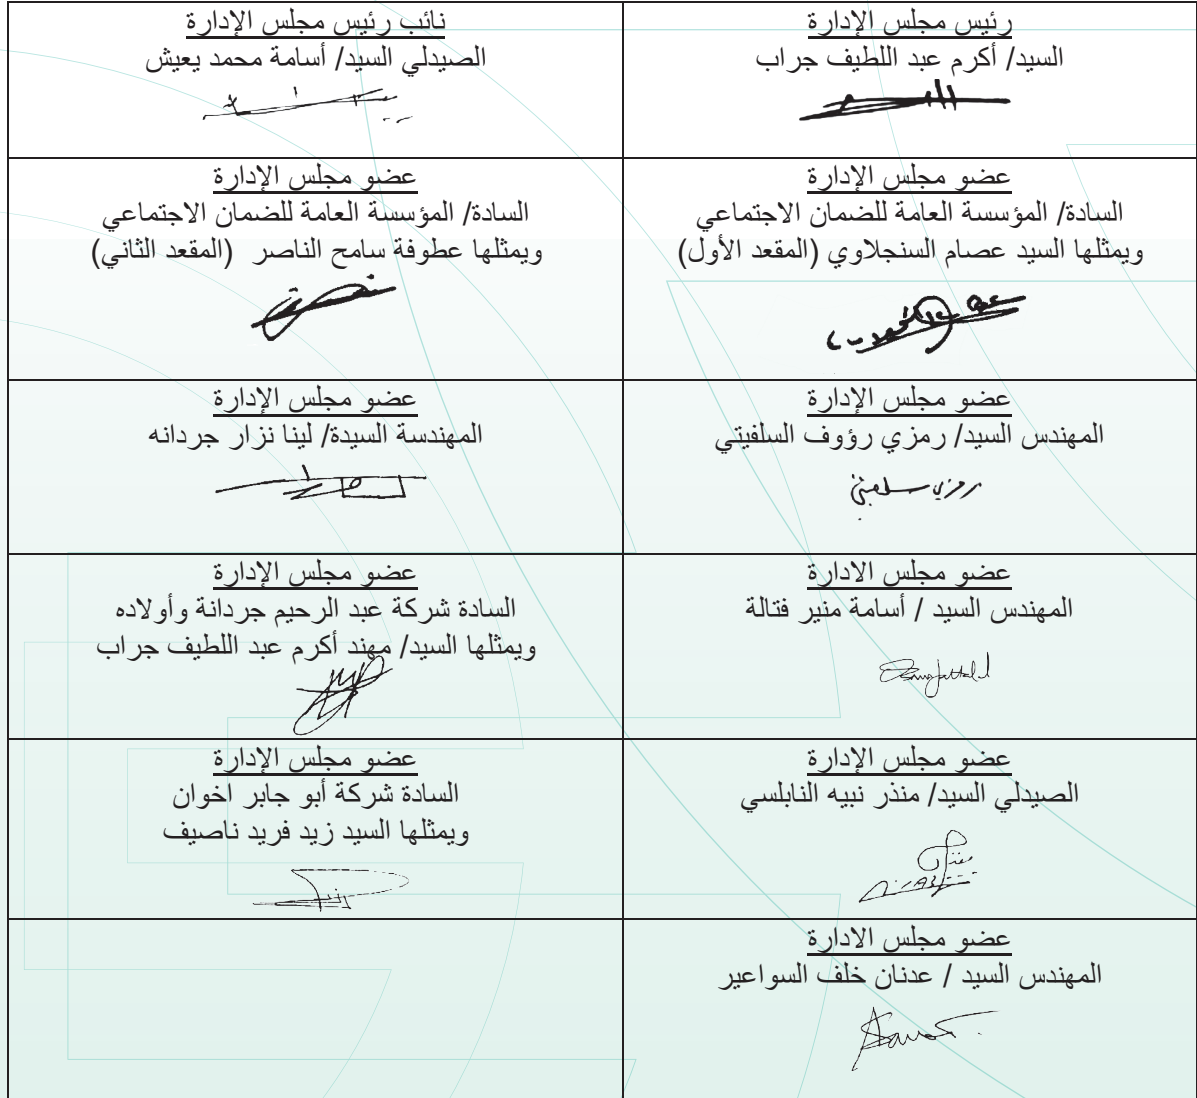 رئيس مجلس الإدارة
السيد/ أكرم عبد اللطيف جراب
نائب رئيس مجلس الإدارة
الصيدلي السيد/ أسامة محمد يعيش
عضو مجلس الإدارة
السادة/ المؤسسة العامة للضمان الاجتماعي
ويمثلها السيد عصام السنجلاوي (المقعد الأول)
عضو مجلس الإدارة
السادة/ المؤسسة العامة للضمان الاجتماعي
ويمثلها عطوفة سامح الناصر (المقعد الثاني)
عضو مجلس الإدارة
المهندس السيد/ رمزي رؤوف السلفيتي
رمزي سلفيتي
عضو مجلس الإدارة
المهندسة السيدة/ لينا نزار جردانه
عضو مجلس الادارة
المهندس السيد / أسامة منير فتالة
عضو مجلس الإدارة
السادة شركة عبد الرحيم جردانة وأولاده
ويمثلها السيد/ مهند أكرم عبد اللطيف جراب
عضو مجلس الإدارة
الصيدلي السيد/ منذر نبيه النابلسي
عضو مجلس الإدارة
السادة شركة أبو جابر اخوان
ويمثلها السيد زيد فريد ناصيف
عضو مجلس الادارة
المهندس السيد / عدنان خلف السواعير